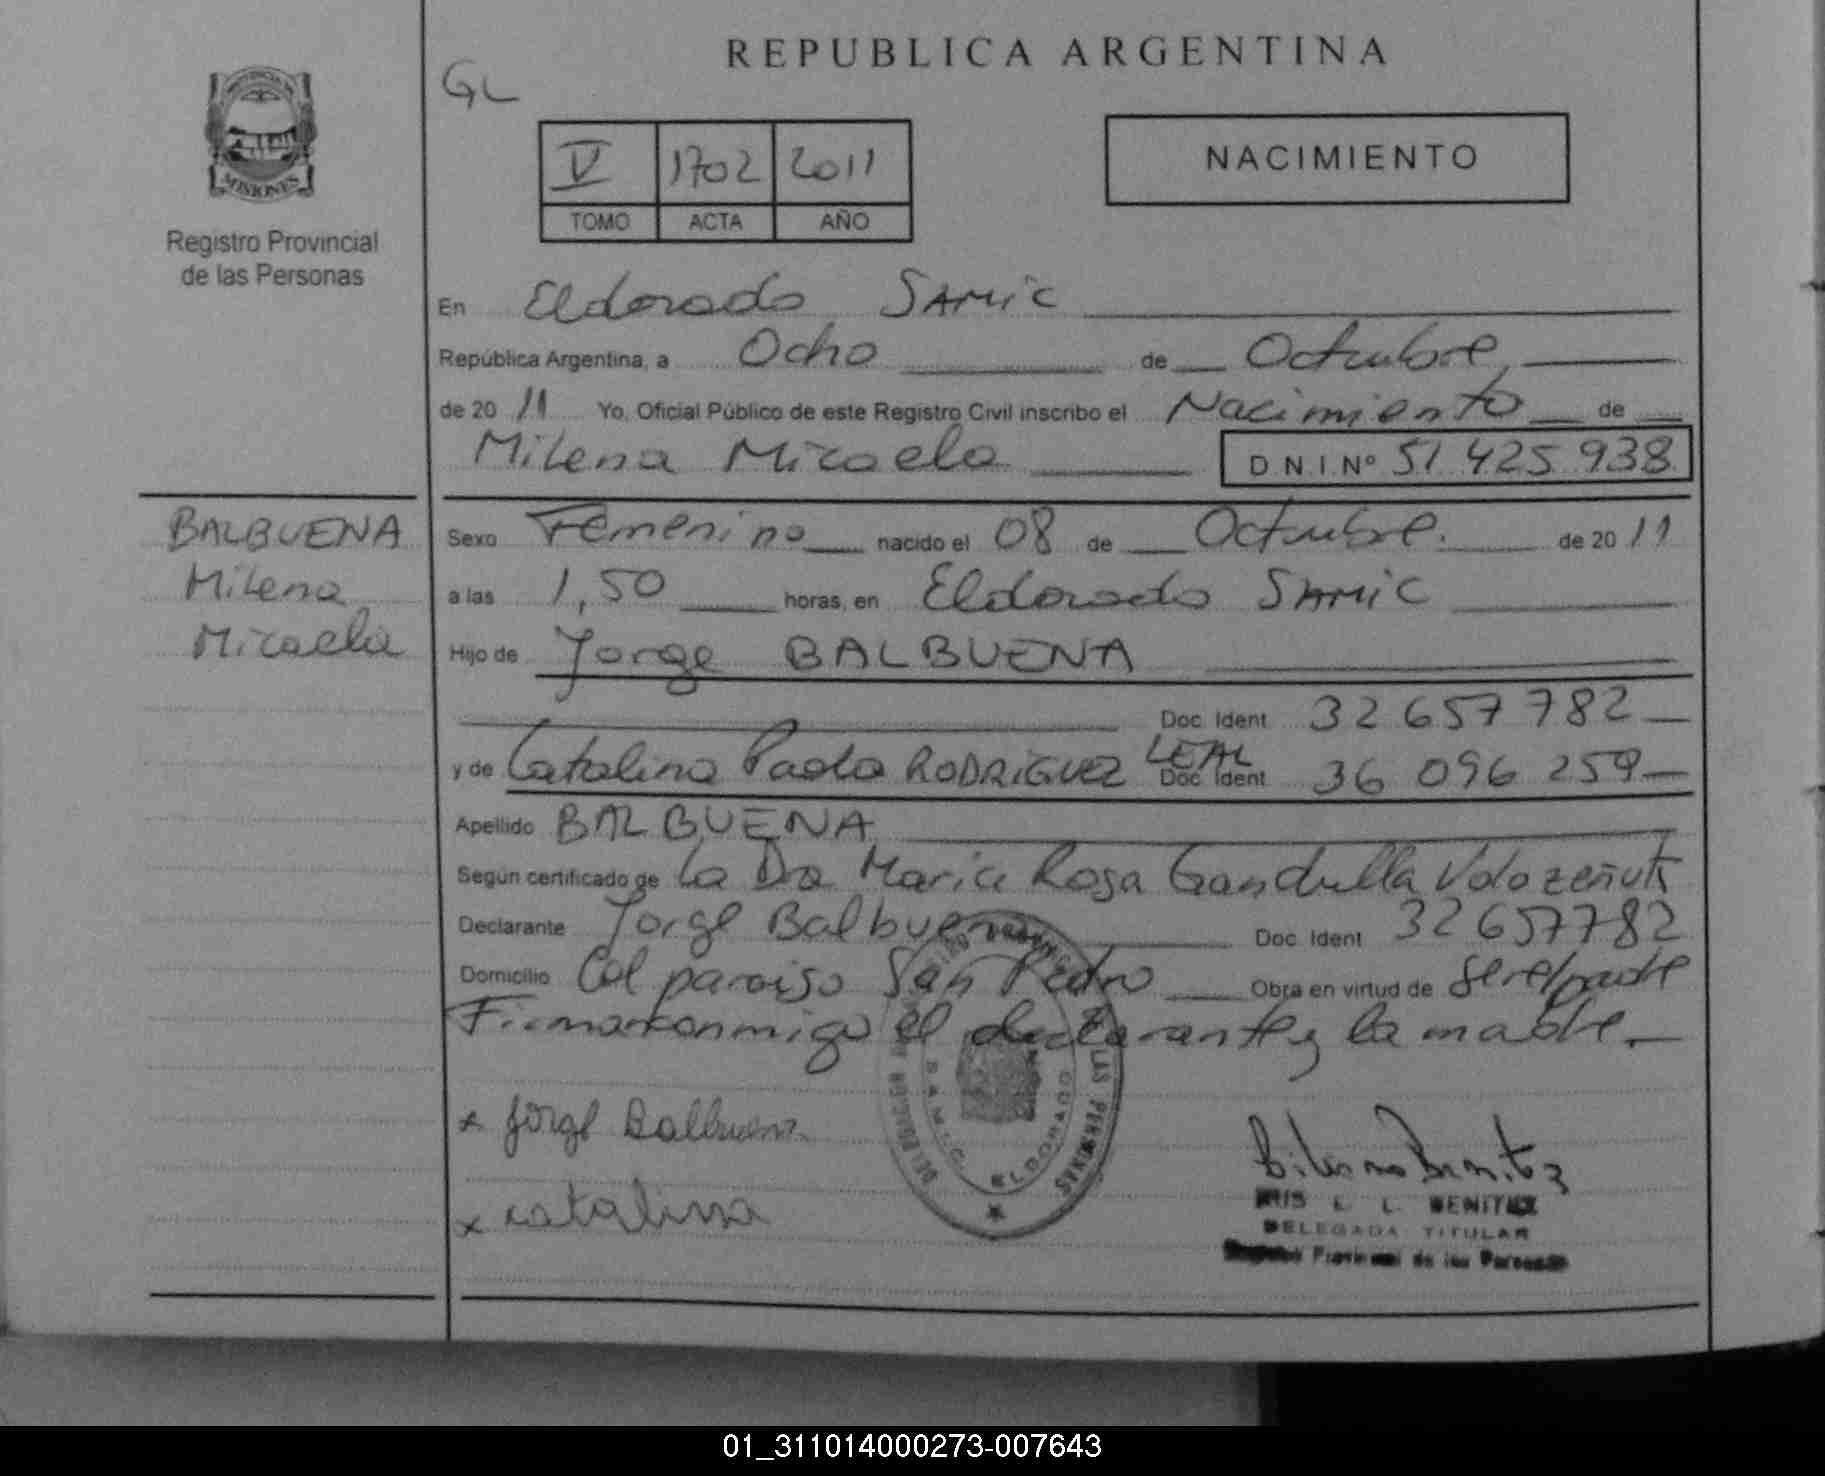 REPUBLICA ARGENTINA
GL
PROVINCIA DE
MISIONES
Registro Provincial
de las Personas
V 1702 2011
TOMO ACTA AÑO
NACIMIENTO
En Eldorado SAMIC
República Argentina, a Ocho de Octubre
de 20 11 Yo, Oficial Público de este Registro Civil inscribo el Nacimiento de
Milena Micaela D.N.I.Nº 51 425 938
BALBUENA
Milena
Micaela
Sexo Femenino nacido el 08 de Octubre. de 20 11
a las 1,50 horas, en Eldorado SAMIC
Hijo de Jorge BALBUENA
Doc. Ident 32 657 782
y de Catalina Paola RODRIGUEZ LEAL Doc. Ident 36 096 259
Apellido BALBUENA
Según certificado de La Dra Maria Rosa Gandulla
Declarante Jorge Balbuena Doc. Ident 32657782
Domicilio Col paraiso San Pedro Obra en virtud de ser el padre
Firman conmigo el declarante y la madre.
x Jorge Balbuena
x catalina
S.A.M.I.C. ELDORADO
LAS PERSONAS
BENITEZ
DELEGADA TITULAR
Registro Provincial de las Personas
01_311014000273-007643